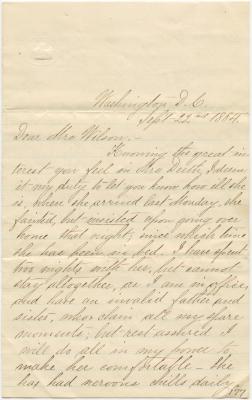 Washington D.C.
Sept. 22nd 1884.
Dear Mrs Wilson,—
Knowing the great in-
terest you feel in Mrs Keith, I deem
it my duty to let you know how all she
is, when she arrived last Monday, she
fainted, but insisted upon going over
home that night, since which time
she has been in bed. I have spent
two nights with her, but cannot
stay altogether, as I am in office,
and have an invalid father and
sister, who claim all my spare
moments; but rest assured I
will do all in my power to
make her comfortable — She
has had nervous chills daily